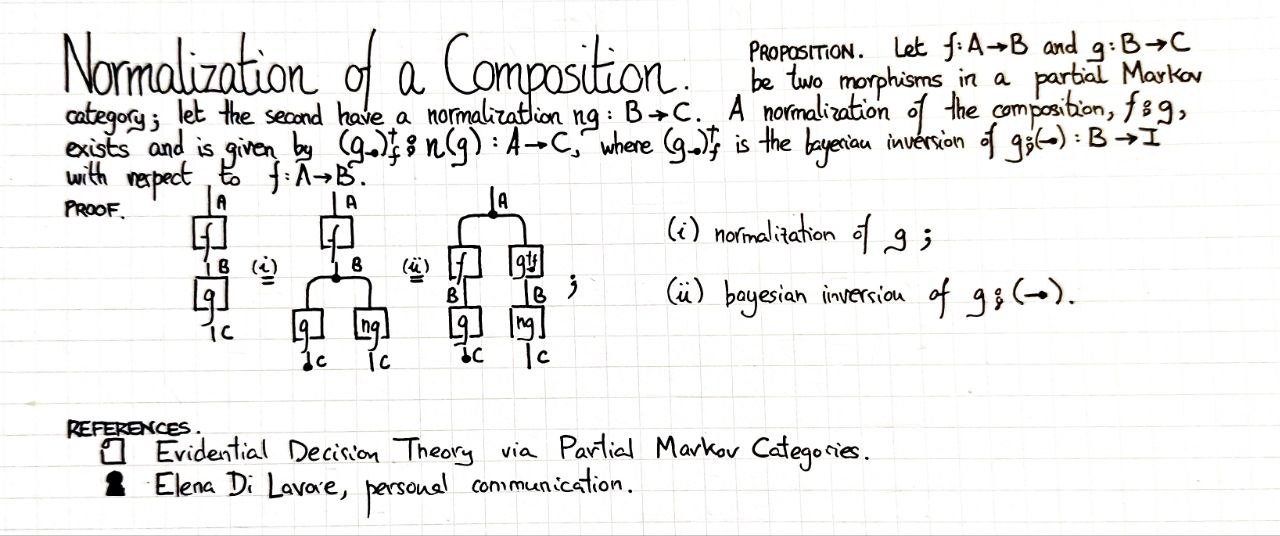 Normalization of a Composition.
PROPOSITION. Let f: A→B and g: B→C
be two morphisms in a partial Markov
category; let the second have a normalization ng: B→C. A normalization of the composition, f⨾g,
exists and is given by (g⊸)†f ⨾ n(g): A→C, where (g⊸)†f is the bayesian inversion of g⨾(⊸): B→I
with respect to f: A→B.
PROOF.
A
f
B
g
C
(i)
=
A
f
B
g
ng
C
C
(ii)
=
A
f
g†f
B
B
g
ng
C
C
;
(i) normalization of g;
(ii) bayesian inversion of g⨾(⊸).
REFERENCES.
Evidential Decision Theory via Partial Markov Categories.
Elena Di Lavore, personal communication.